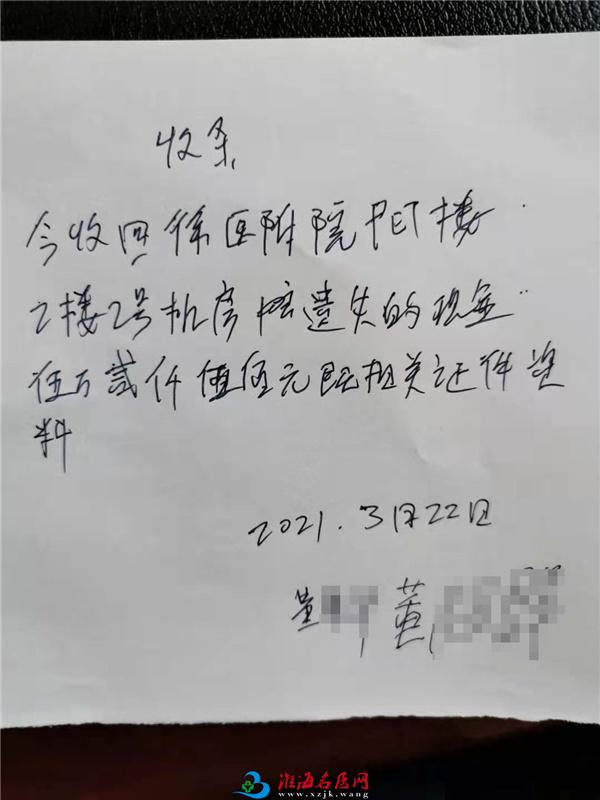 收条
今收回徐医附院PET楼
2楼2号机房 遗失的现金
伍万贰仟 伍元 相关证件资
料
2021.3月22日
董 董
淮海名医网
www.xzjk.wang